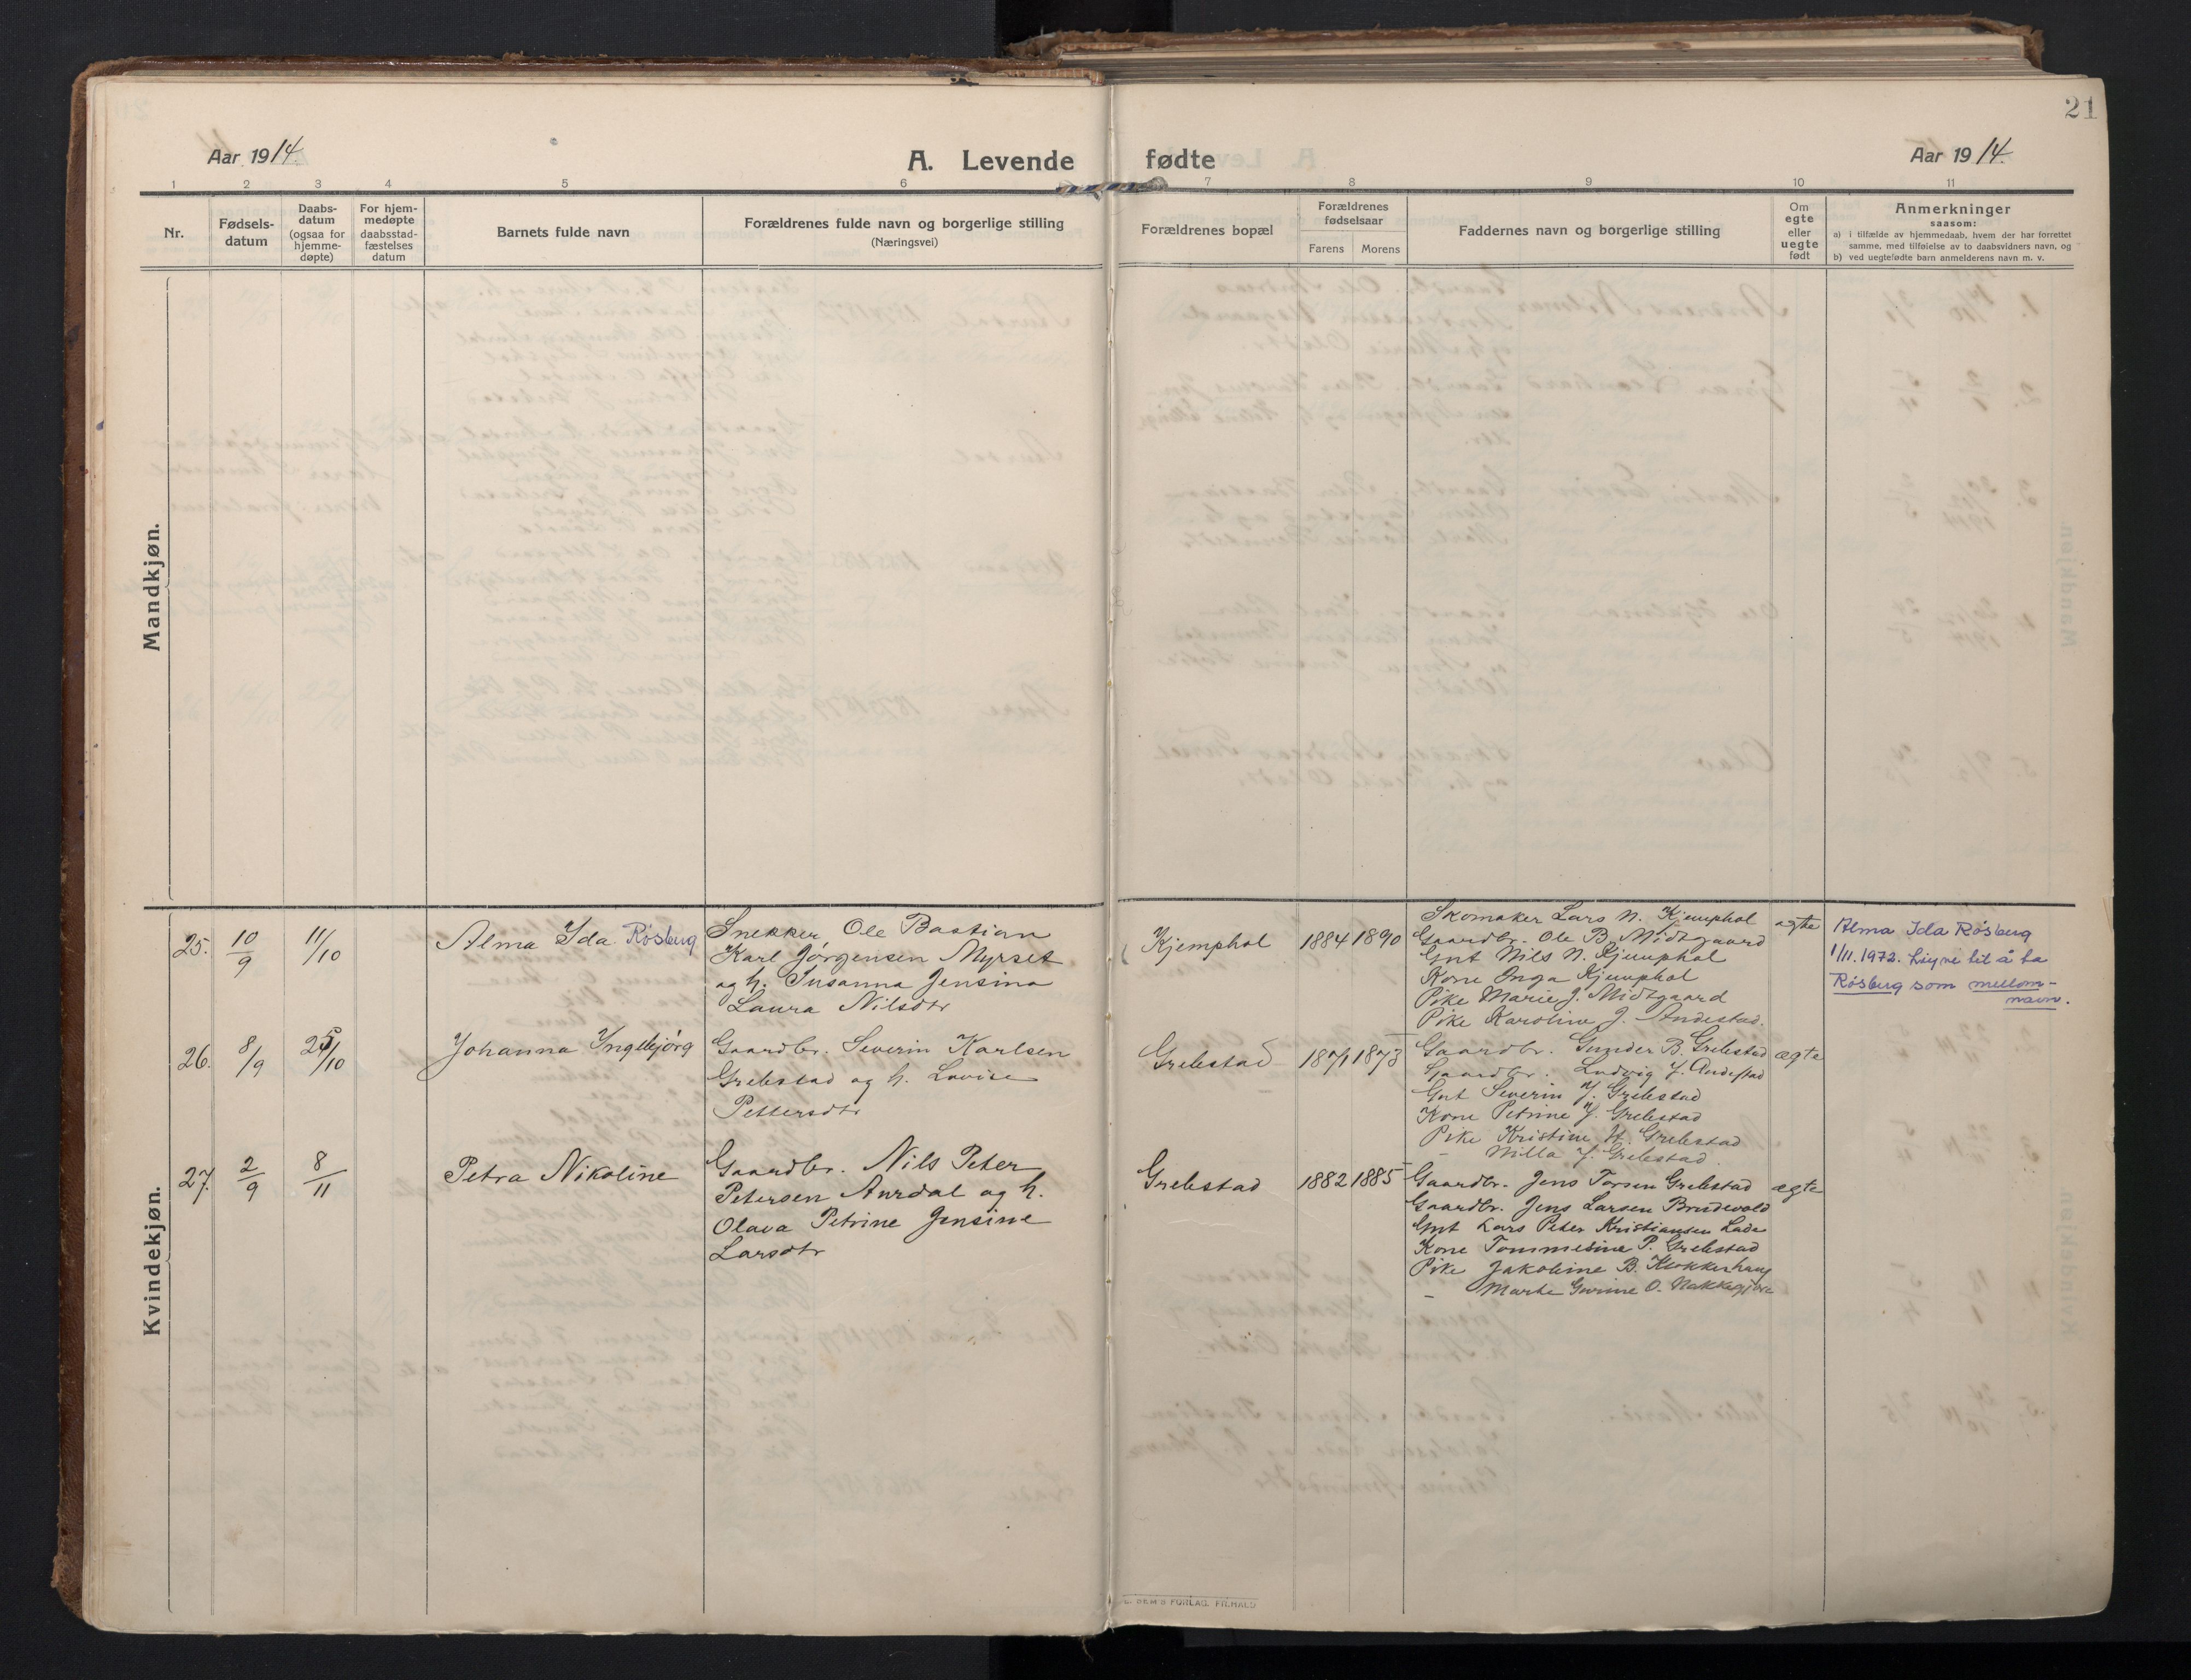 21
Aar 1914.
A. Levende fødte
Aar 1914.
1 2 3 4 5 6 7 8 9 10 11
Nr.
Fødsels-
datum
Daabs-
datum
(ogsaa for
hjemme-
døpte)
For hjem-
medøpte
daabsstad-
fæstelses
datum
Barnets fulde navn
Forældrenes fulde navn og borgerlige stilling
(Næringsvei)
Forældrenes bopæl
Forældrenes
fødselsaar
Farens Morens
Faddernes navn og borgerlige stilling
Om
egte
eller
uegte
født
Anmerkninger
saasom:
a) i tilfælde av hjemmedaab, hvem der har forrettet
samme, med tilføielse av to daabsvidners navn, og
b) ved uegtefødte barn anmelderens navn m. v.
Mandkjøn.
Kvindekjøn.
25. 10/9 11/10
Alma Ida Røsberg
Snekker Ole Bastian
Karl Jørgensen Myrset
og h. Susanna Jensina
Laura Nilsdtr
Kjemphol 1884 1890
Skomaker Lars N. Kjemphol
Gaardbr. Ole B. Midtgaard
Gut Nils N. Kjemphol
Kone Inga Kjemphol
Pike Marie J. Midtgaard
Pike Karoline J. Andestad.
egte
Alma Ida Røsberg
1/11. 1972. Lisens til å ta
Røsberg som mellom-
navn.
26. 8/9 25/10
Johanna Ingebjørg
Gaardbr. Severin Karlsen
Grebstad og h. Lovise
Pettersdtr
Grebstad 1871 1873
Gaardbr. Gunder B. Grebstad
Gaardbr. Ludvig J. Andestad
Gut Severin J. Grebstad
Kone Petrine J. Grebstad
Pike Kristine H. Grebstad
– Milla J. Grebstad
ægte
27. 2/9 8/11
Petra Nikoline
Gaardbr. Nils Peter
Petersen Aurdal og h.
Olava Petrine Jensine
Larsdtr
Grebstad 1882 1885
Gaardbr. Jens Torsen Grebstad
Gaardbr. Jens Larsen Brudevold
Gut Lars Peter Kristiansen Lade
Kone Tommesine P. Grebstad
Pike Jakobine B. Klokkerhaug
– Marte Gurine O. Nakkegjære
ægte
FORLAG. FR.HALD